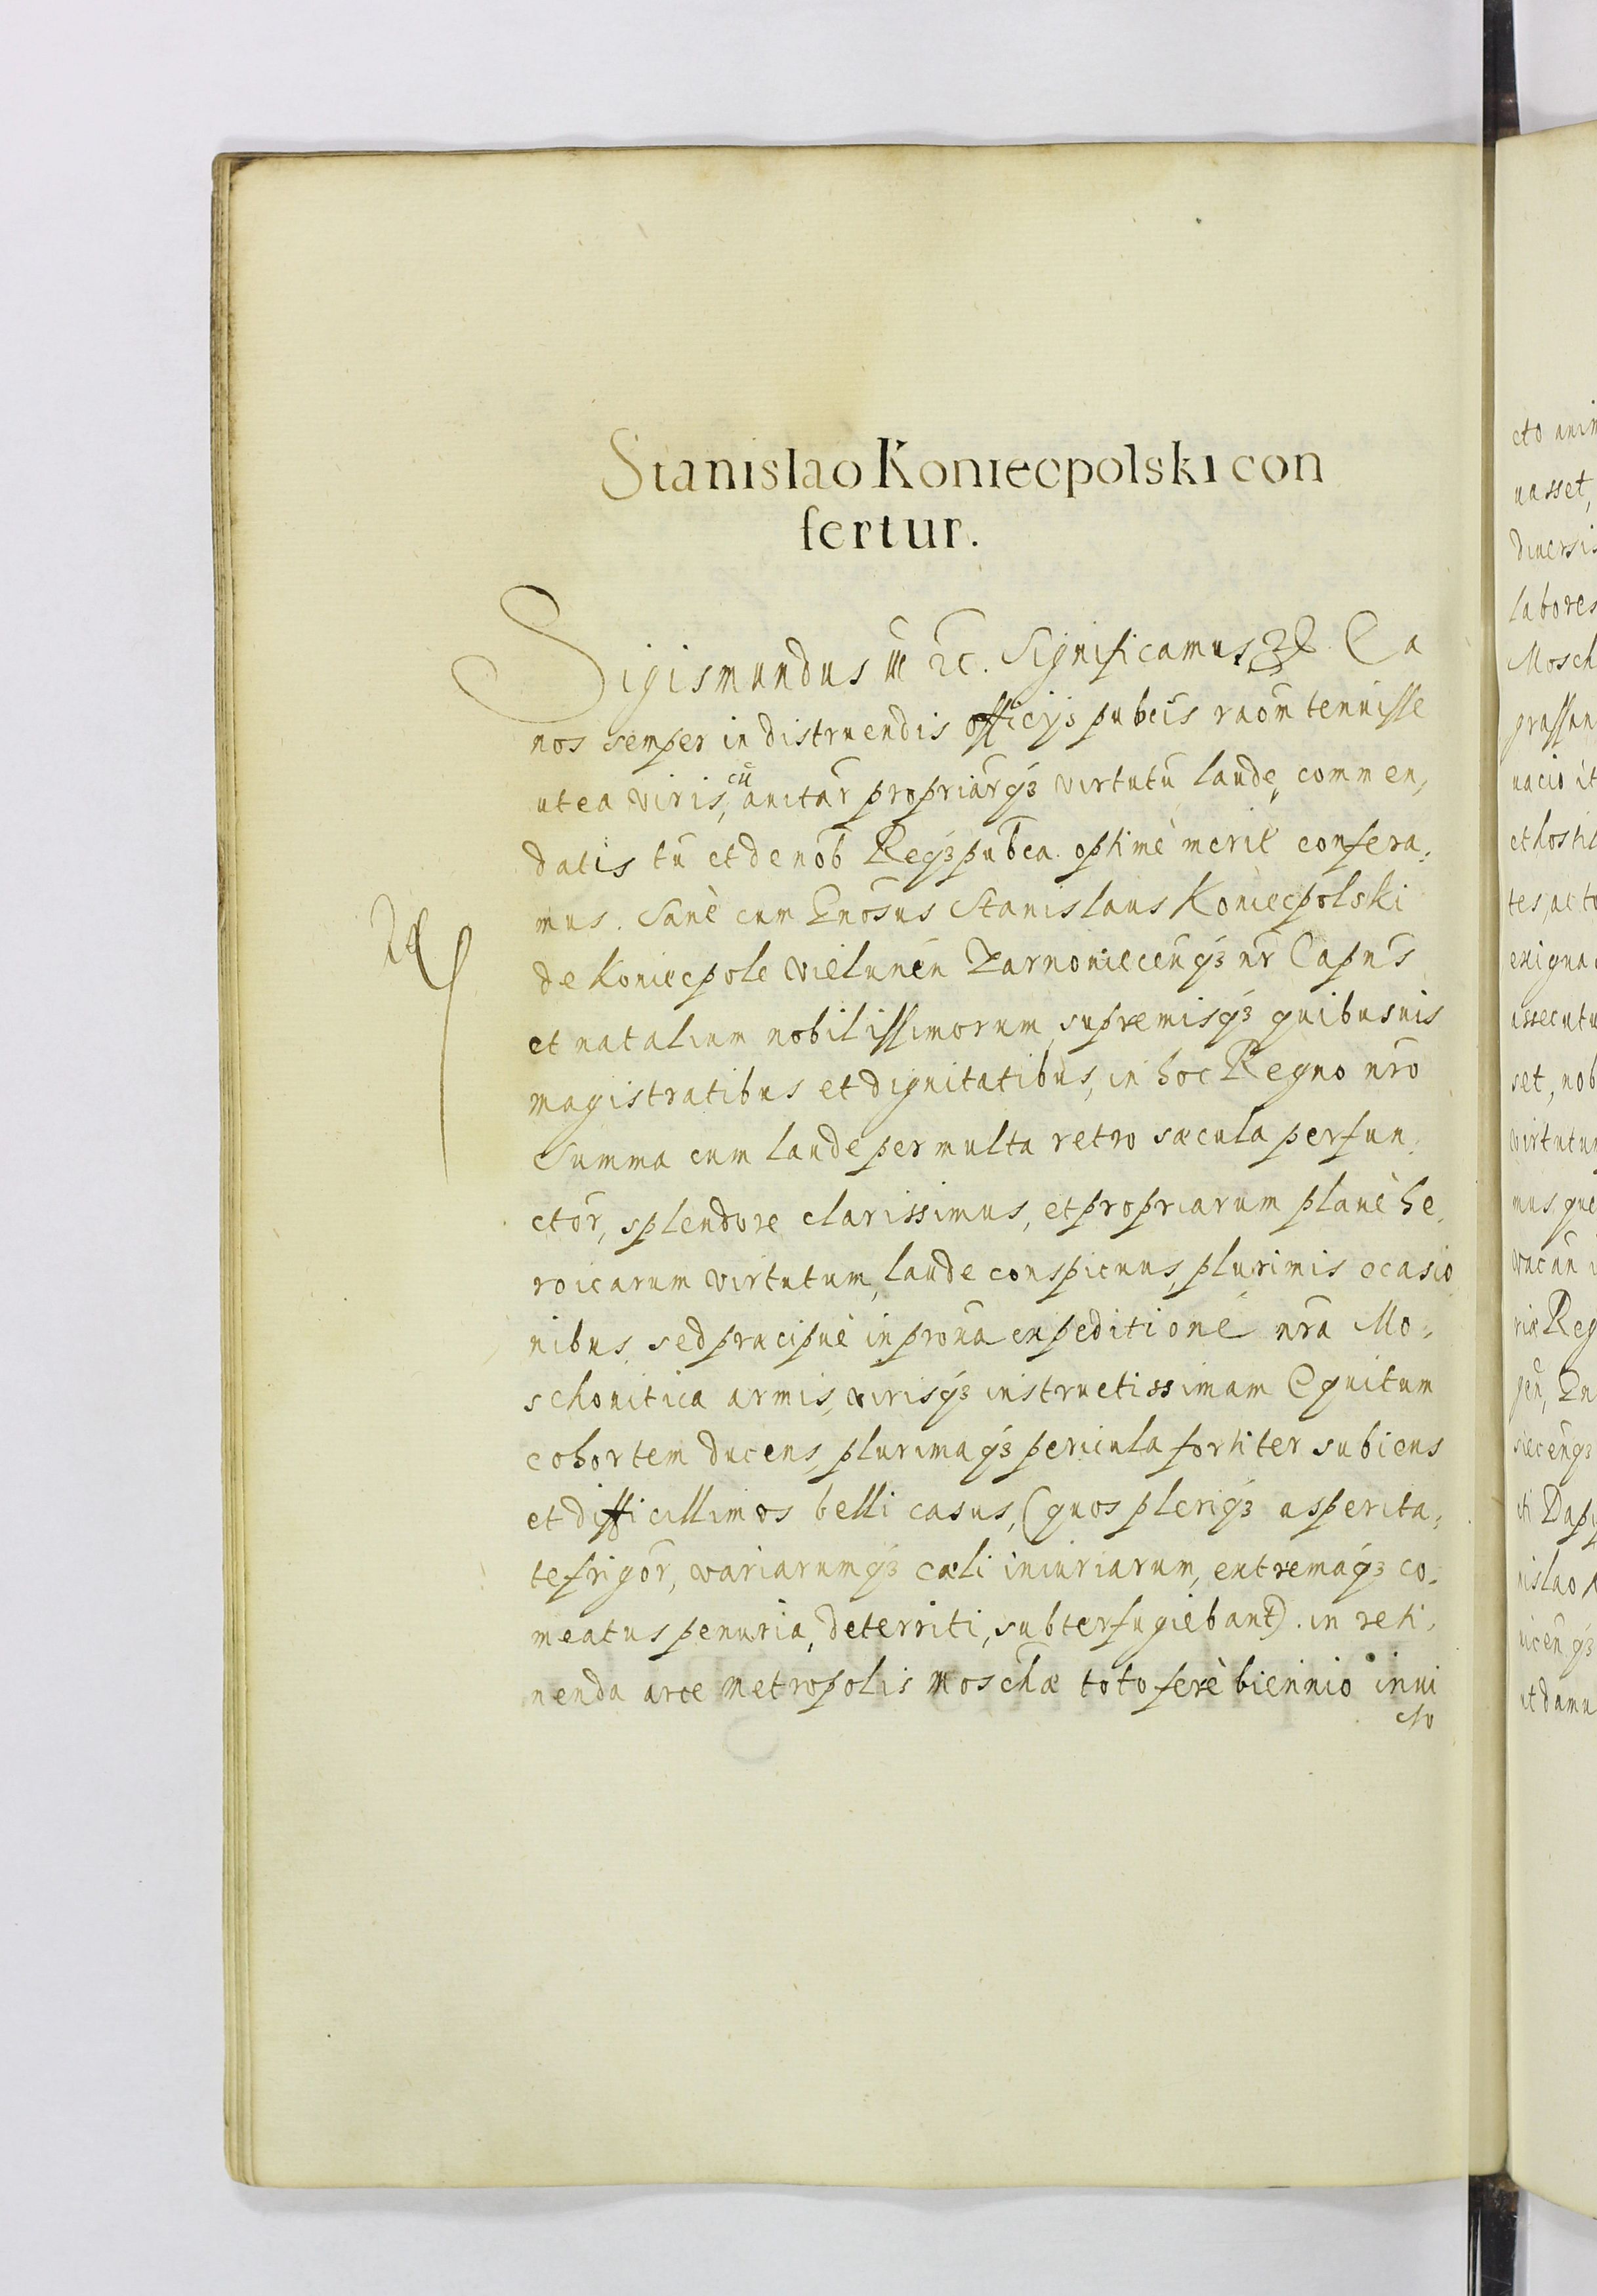 Stanislao Koniecpolski con
fertur.
Sigismundus III etc. Significamus etc. Ea
nos semper in distruendis officijs pubcis raom tenuisse
ut ea viris, cū auitar propriarq3 virtutū laude, commen,
datis tū et de nob Req3 pubca. optimè merit confera,
mus. Sanè cum Gnosus Stanislaus Koniecpolski
de Koniecpole Vielunen Zarnoviecenq3 nr Capns
et natalium nobilissimorum supremisq3 quibusuis
magistratibus et dignitatibus, in hoc Regno nro
Summa cum laude per multa retro sæcula perfun,
ctor, splendore clarissimus, et propriarum planè he,
roicarum virtutum, laude conspicuus, plurimis ocasio
nibus, sed præcipuè in expeditione nra Mo,
schouitica armis, virisq3 instructissimam Equitum
cohortem ducens, plurimaq3 pericula fortiter subiens
et difficillimos belli casus, (quos pleriq3 asperita,
te frigor, variarumq3 cœli iniuriarum, extremaq3 co,
meatus penuria, deterriti, subterfugiebant). in reti,
nenda arce Metropolis Moschæ toto ferè biennio inui
cto
cto anim
uasset,
diuersis
labores
Mosch
grassan
uacio it
et hostil
tes, ac to
exigua
assecutu
set, nob
virtutum
mus, que
vacan i
riæ Reg
gen, Gn
siecenq3
ti Dapi
nislao
uicenq3
ut damu